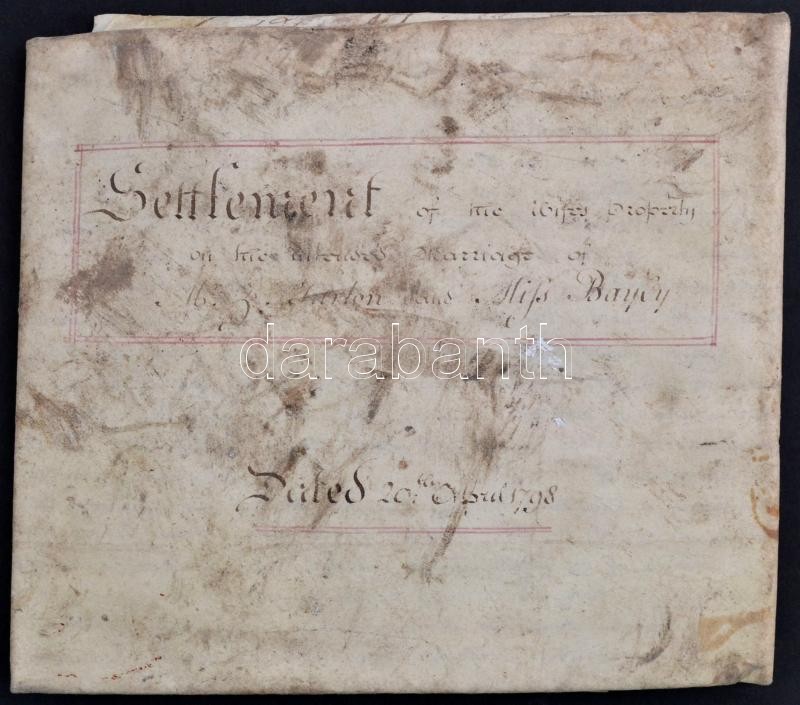 Settlement of the Wifes Property
on the intended Marriage of
Mr and Miſs Bayly
darabanth
Dated 20th April 1798